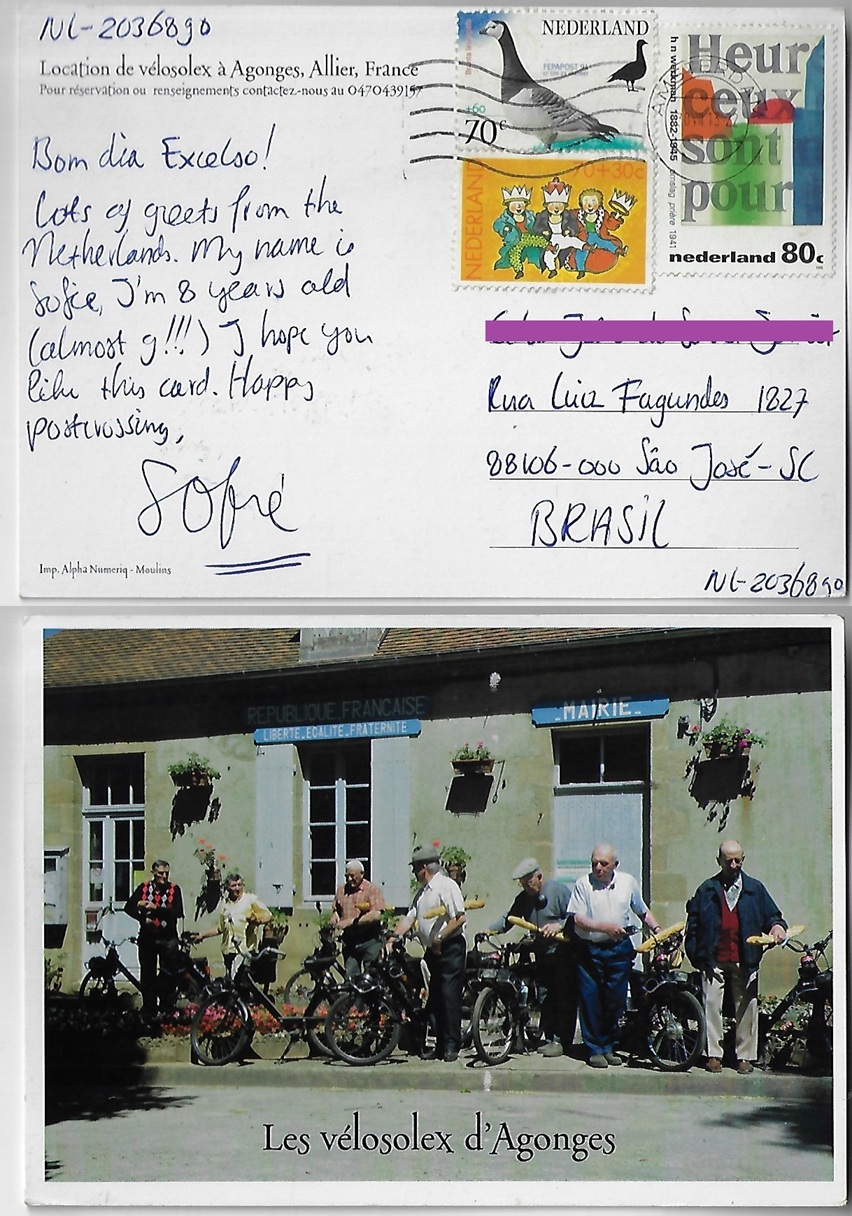 NL-2036890
Location de vélosolex à Agonges, Allier, France
Pour réservation ou renseignements contactez-nous au 0470439157
Bom dia Excelso!
Lots of greets from the
Netherlands. My name is
Sofie, I'm 8 years old
(almost 9!!!) I hope you
like this card. Happy
postcrossing,
Sofie
Imp. Alpha Numeriq - Moulins
NEDERLAND
FEPAPOST 94
+60
70c
NEDERLAND
70+30c
Heur
ceux
sont
pour
h n werkman 1882-1945
prière 1941
nederland 80c
Rua Luiz Fagundes 1827
88106-000 São José-SC
BRASIL
NL-2036890
REPUBLIQUE FRANÇAISE
LIBERTE_EGALITE_FRATERNITE
_MAIRIE_
Les vélosolex d'Agonges